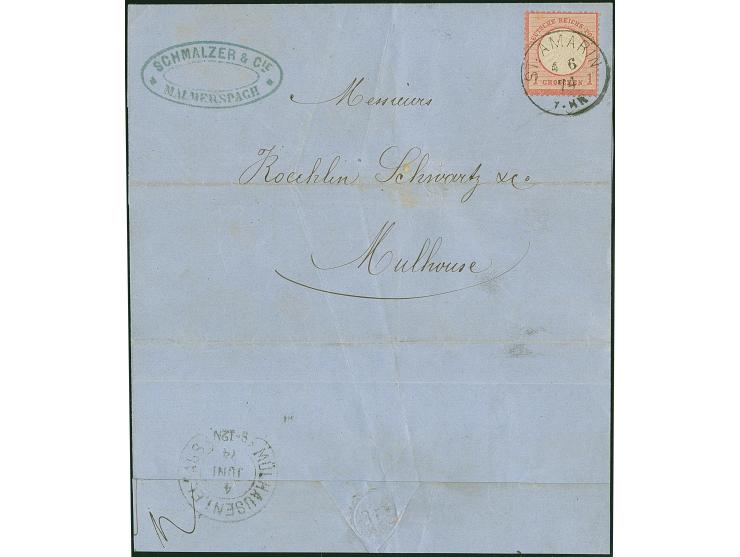 SCHMALZER & CIE
MALMERSPACH
DEUTSCHE REICHS-POST
1 GROSCHEN 1
ST. AMARIN
4 6
74
7-
Messieurs
Koechlin Schwartz &c.
Mulhouse
MÜLHAUSEN I. ELSASS
4
JUNI
74
8-12N